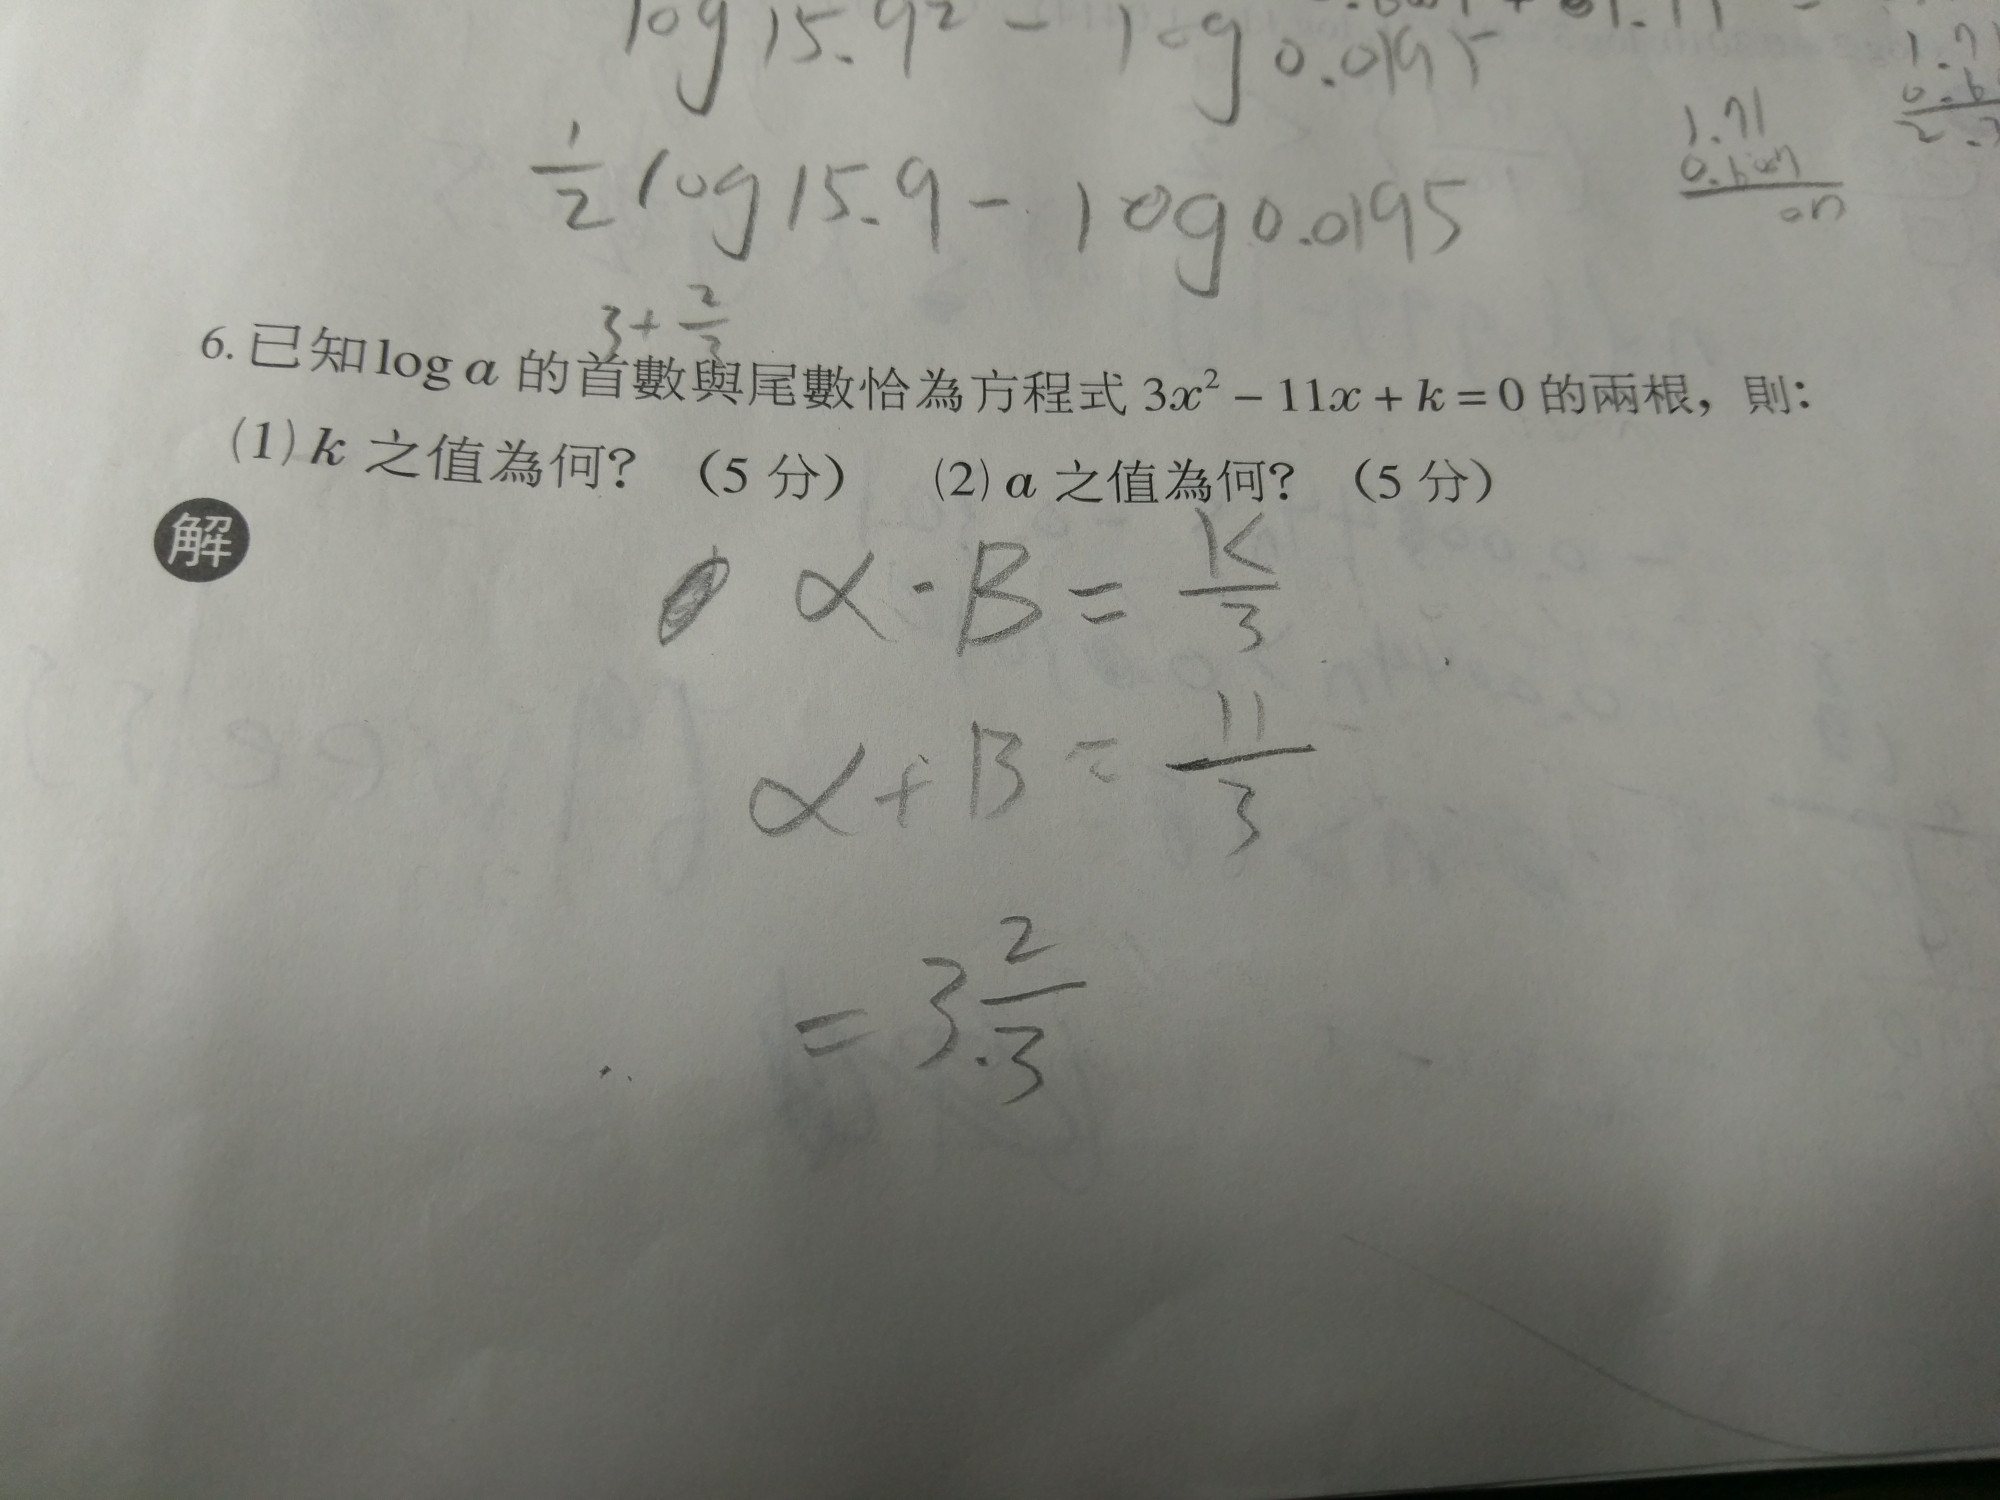 log 15.9² - log 0.0195
1/2 log 15.9 - log 0.0195
1.71
3 + 2/3
6. 已知 log a 的首數與尾數恰為方程式 3x² - 11x + k = 0 的兩根，則：
(1) k 之值為何？ （5 分） (2) a 之值為何？ （5 分）
解
α · B = K/3
α + B = 11/3
= 3 2/3